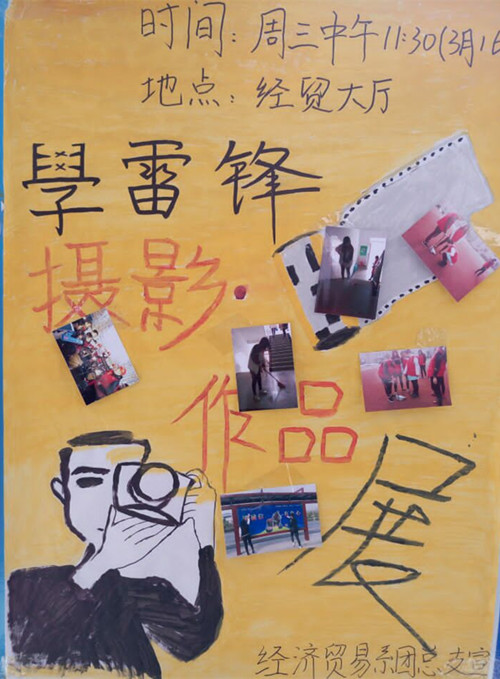 时间:周三中午11:30(3月1
地点:经贸大厅
學雷锋
摄影·
作品
展
经济贸易系团总支宣